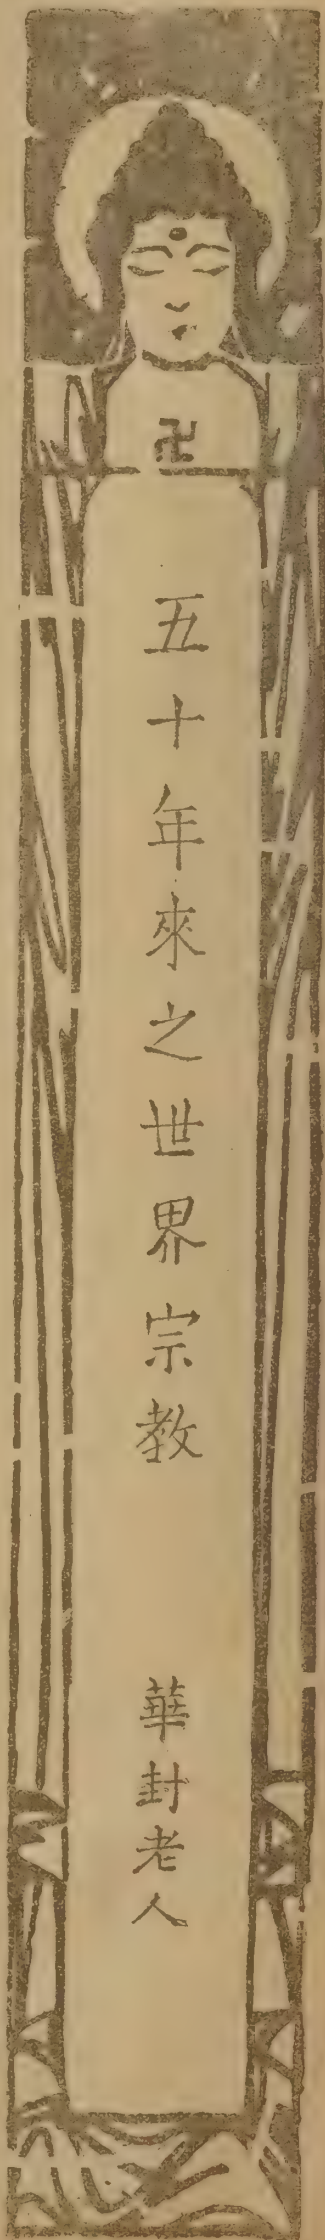 卍
五十年來之世界宗教
華封老人